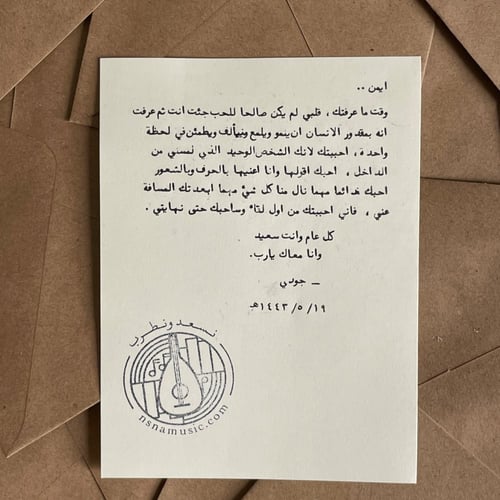 ايمن ..
وقت ما عرفتك ، قلبي لم يكن صالحا للحب جئت انت ثم عرفت
انه بمقدور الانسان ان ينمو ويلمع ويتألف ويطمئن في لحظة
واحدة ، احببتك لانك الشخص الوحيد الذي لمسني من
الداخل ، احبك اقولها وانا اعنيها بالحرف وبالشعور
احبك دائما مهما نال منا كل شيء مهما ابعدتك المسافة
عني ، فاني احببتك من اول لقاء وساحبك حتى نهايتي .
كل عام وانت سعيد
وانا معاك يارب.
– جودي
١٩/ ٥/ ١٤٤٣هـ
نسعد ونطرب
nsnamusic.com